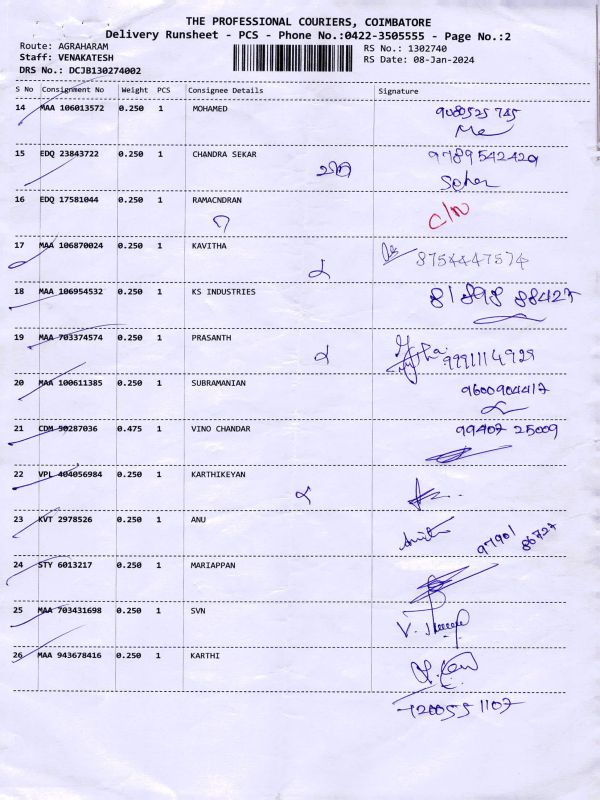 THE PROFESSIONAL COURIERS, COIMBATORE
Delivery Runsheet - PCS - Phone No.:0422-3505555 - Page No.:2
Route: AGRAHARAM
Staff: VENAKATESH
DRS No.: DCJB130274002
RS No.: 1302740
RS Date: 08-Jan-2024
S No Consignment No Weight PCS Consignee Details Signature
14 MAA 106013572 0.250 1 MOHAMED
9080525745
15 EDQ 23843722 0.250 1 CHANDRA SEKAR 9789542420
Seher
16 EDQ 17581044 0.250 1 RAMACNDRAN
17 MAA 106870024 0.250 1 KAVITHA 8754447574
18 MAA 106954532 0.250 1 KS INDUSTRIES 81898 88427
19 MAA 703374574 0.250 1 PRASANTH
20 MAA 100611385 0.250 1 SUBRAMANIAN 9600904417
21 CDM 50287036 0.475 1 VINO CHANDAR 99407 25009
22 VPL 404056984 0.250 1 KARTHIKEYAN
23 KVT 2978526 0.250 1 ANU
97901 86727
24 STY 6013217 0.250 1 MARIAPPAN
25 MAA 703431698 0.250 1 SVN
26 MAA 943678416 0.250 1 KARTHI
7200551107